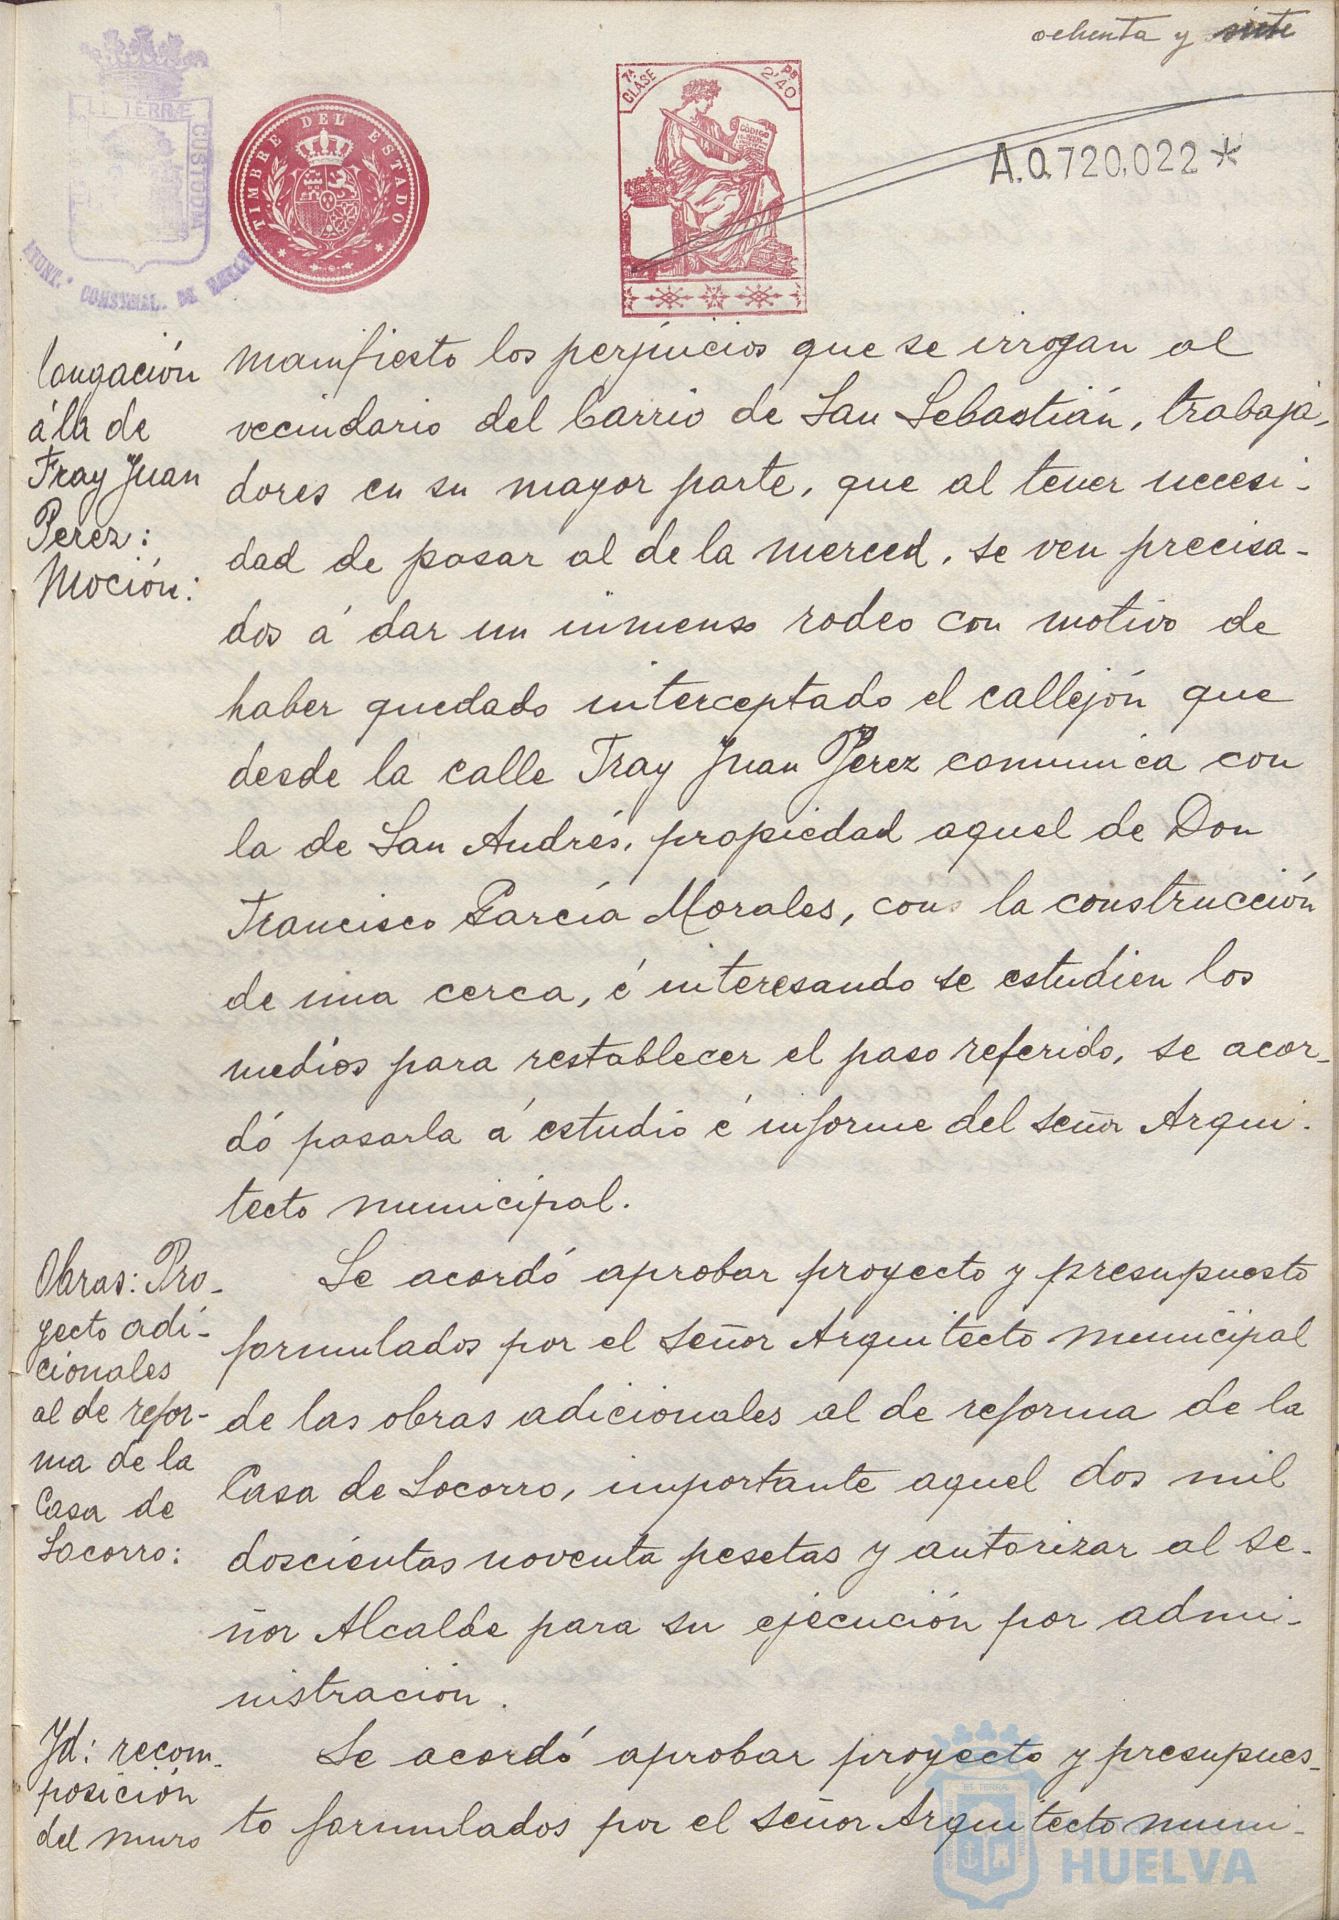 ochenta y siete
TIMBRE DEL ESTADO
7ª CLASE
2'40 Ps
CÓDIGO
A.0.720.022*
CUSTODIA
AYUNT.º CONSTNAL. DE HUELVA
longación
á la de
Fray Juan
Perez:
Moción:
manifiesto los perjuicios que se irrogan al
vecindario del barrio de San Sebastián, trabaja-
dores en su mayor parte, que al tener necesi-
dad de pasar al de la merced, se ven precisa-
dos á dar un inmenso rodeo con motivo de
haber quedado interceptado el callejón que
desde la calle Fray Juan Perez comunica con
la de San Andrés, propiedad aquel de Don
Francisco García Morales, con la construcción
de una cerca, é interesando se estudien los
medios para restablecer el paso referido, se acor-
dó pasarla á estudio é informe del señor Arqui-
tecto municipal.
Obras: Pro-
yecto adi-
cionales
al de refor-
ma de la
Casa de
Socorro:
Se acordó aprobar proyecto y presupuesto
formulados por el señor Arquitecto municipal
de las obras adicionales al de reforma de la
Casa de Socorro, importante aquel dos mil
doscientas noventa pesetas y autorizar al se-
ñor Alcalde para su ejecución por admi-
nistración.
Yd: recom-
posición
del muro
Se acordó aprobar proyecto y presupues-
to formulados por el señor Arquitecto muni-
HUELVA